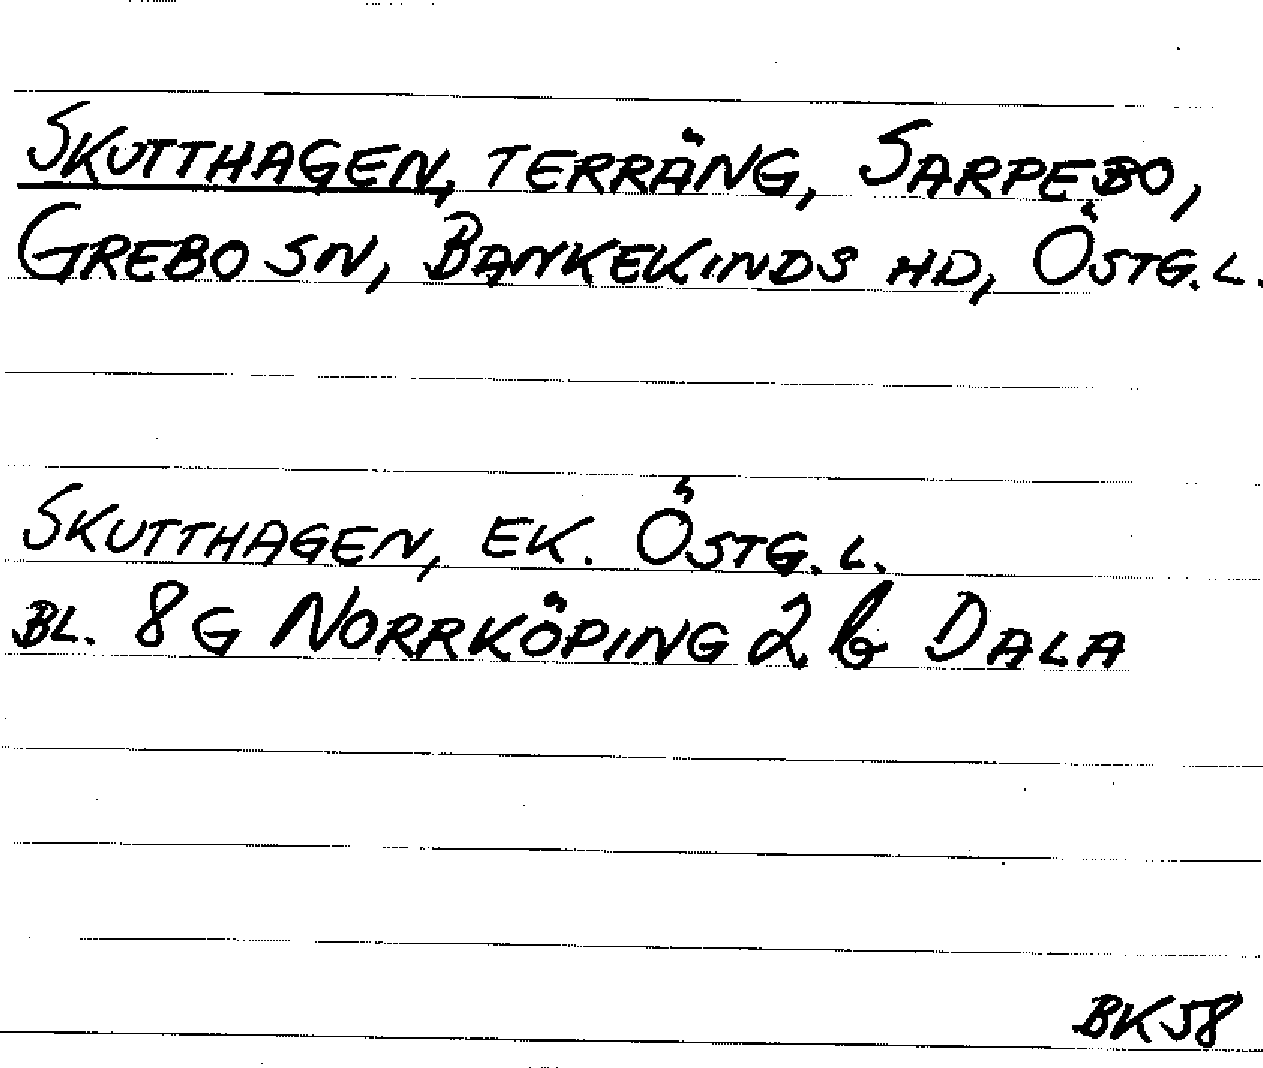 SKUTTHAGEN, TERRÄNG, SARPEBO,
GREBO SN, BANKEKINDS HD, ÖSTG. L.
SKUTTHAGEN, EK. ÖSTG. L.
BL. 8G NORRKÖPING 2b DALA
BK58